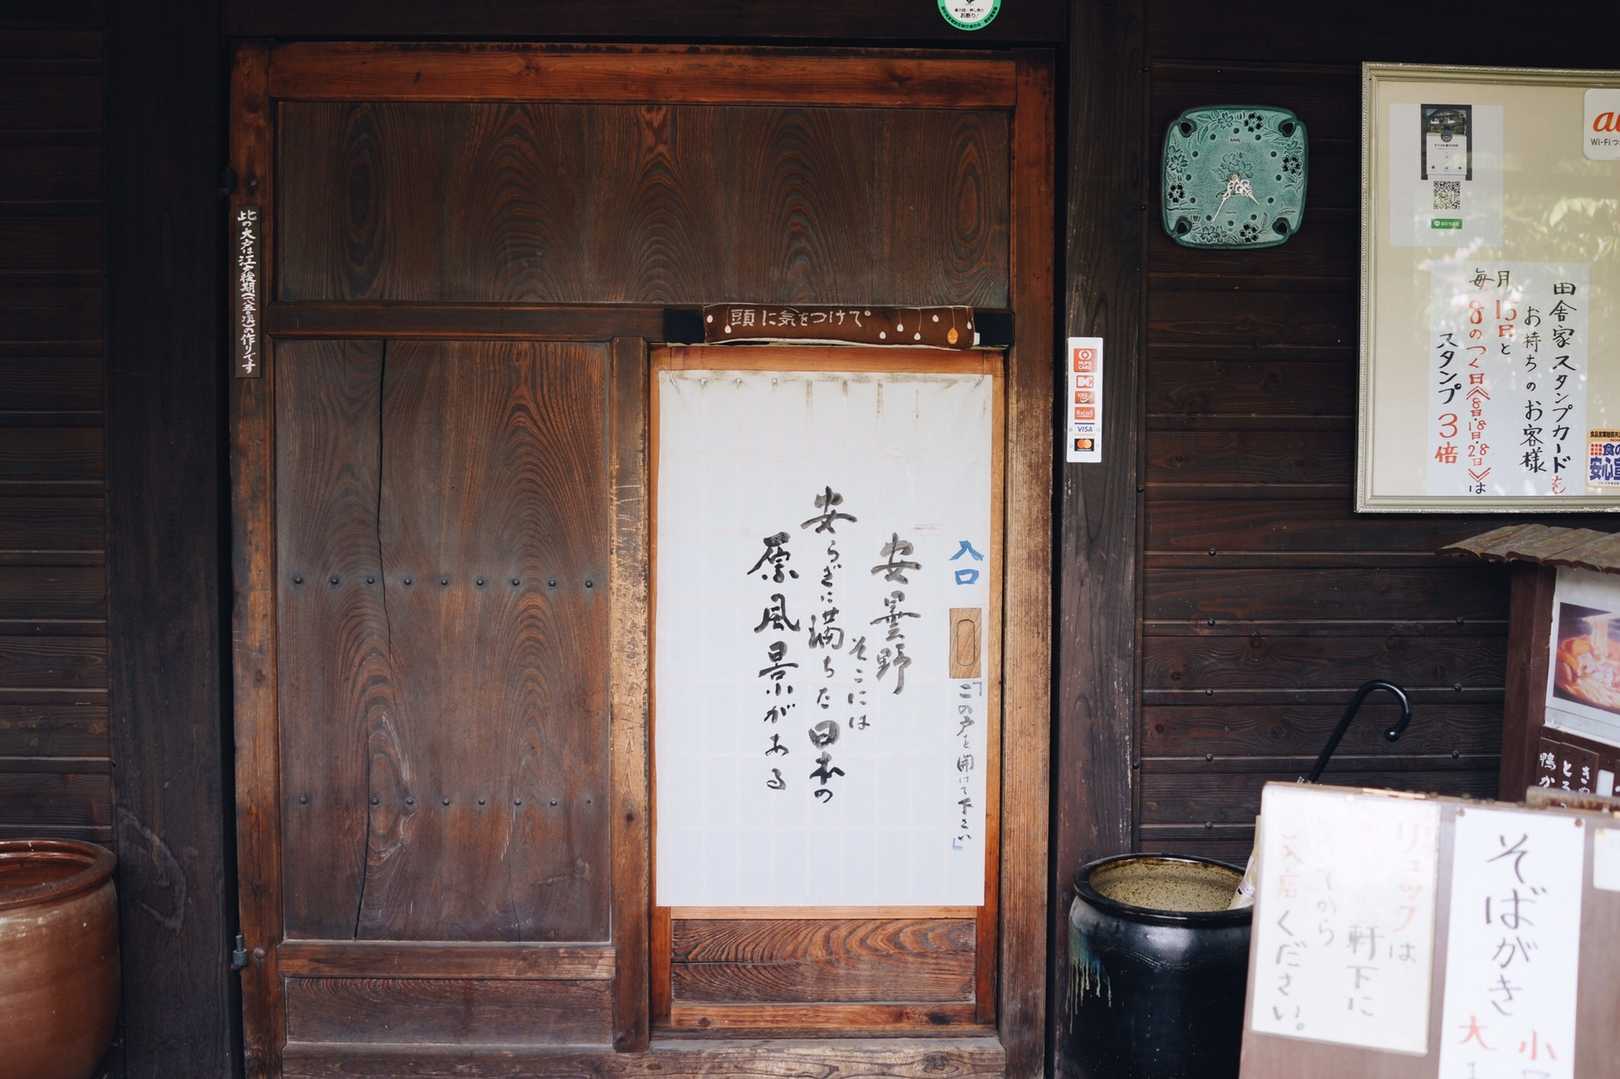 お断り!
此の大戸は江戸後期
の作りです
頭に気をつけて
入口
「この戸を開けて下さい」
安曇野
そこには
安らぎに満ちた日本の
原風景がある
VISA
au
Wi-Fi
田舎家スタンプカードを
お持ちのお客様
毎月15日と
8のつく日《8日・18日・28日》は
スタンプ3倍
リュックは
軒下に
てから
入店ください。
そばがき
小
大
鴨